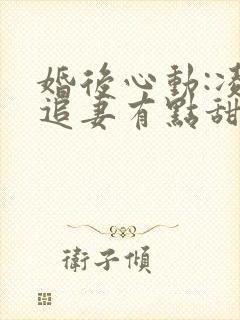 婚後心動:凌
追妻有點甜
衛子傾